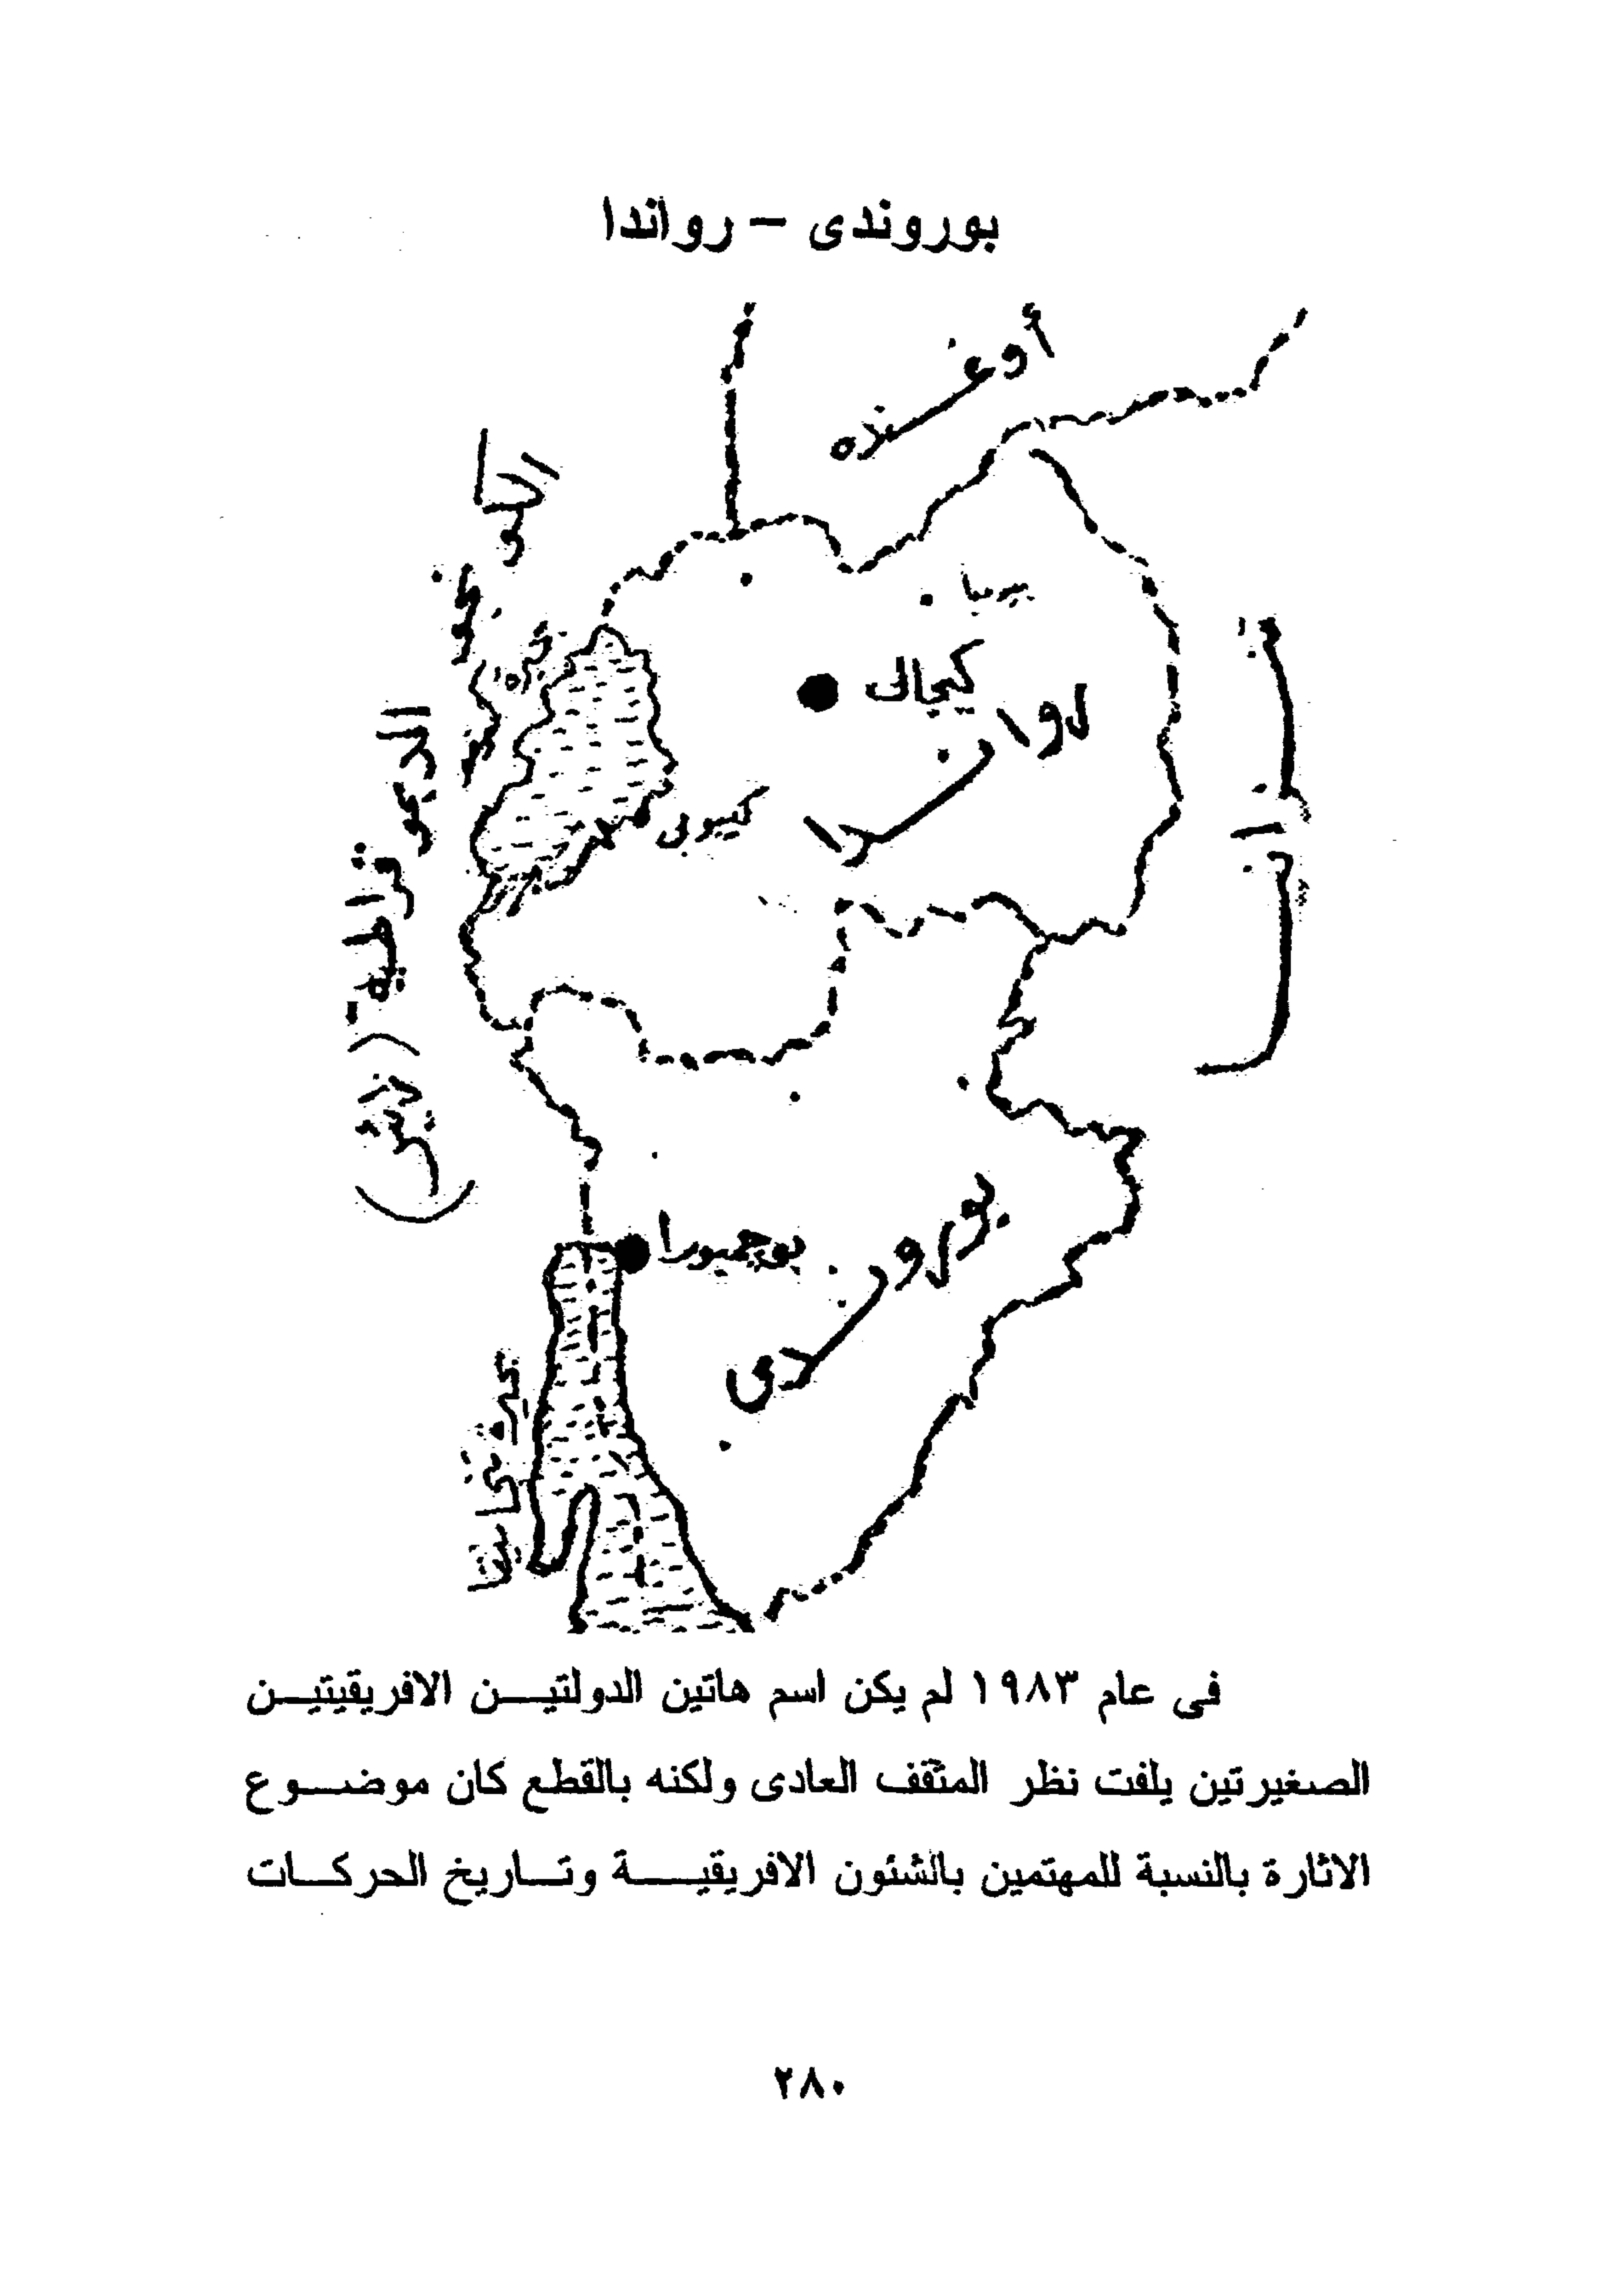 بوروندى – رواندا
أوغنده
بيومبا
كيجالى
رواندا
كيبوى
الكونغو
الديموقراطية
بوجمبورا
بوروندى
فى عام ١٩٨٣ لم يكن اسم هاتين الدولتيـــن الافريقيتيـن
الصغيرتين يلفت نظر المثقف العادى ولكنه بالقطع كان موضـــوع
الاثارة بالنسبة للمهتمين بالشئون الافريقيــــة وتــاريخ الحركــات
٢٨٠